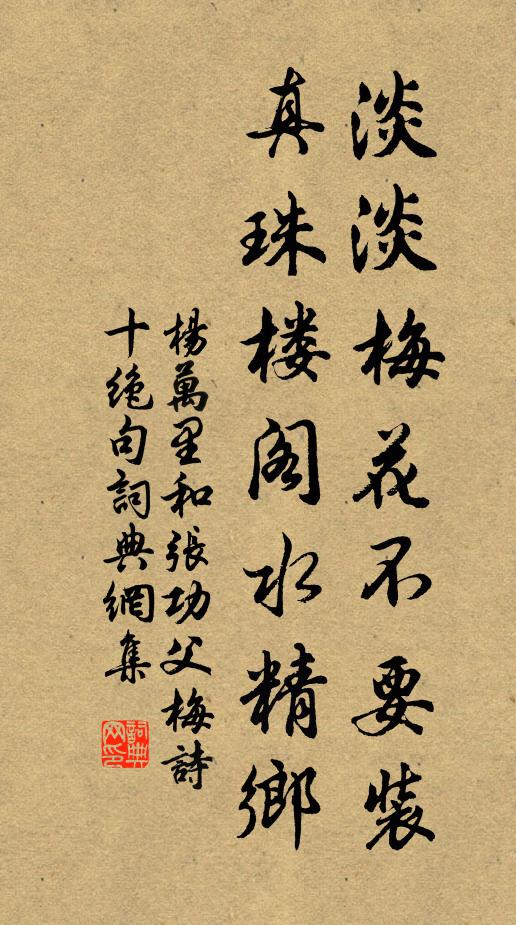 淡淡梅花不要裝
真珠楼阁水精鄉
楊萬里和張功父梅詩
十绝句詞典網集
詞典网印